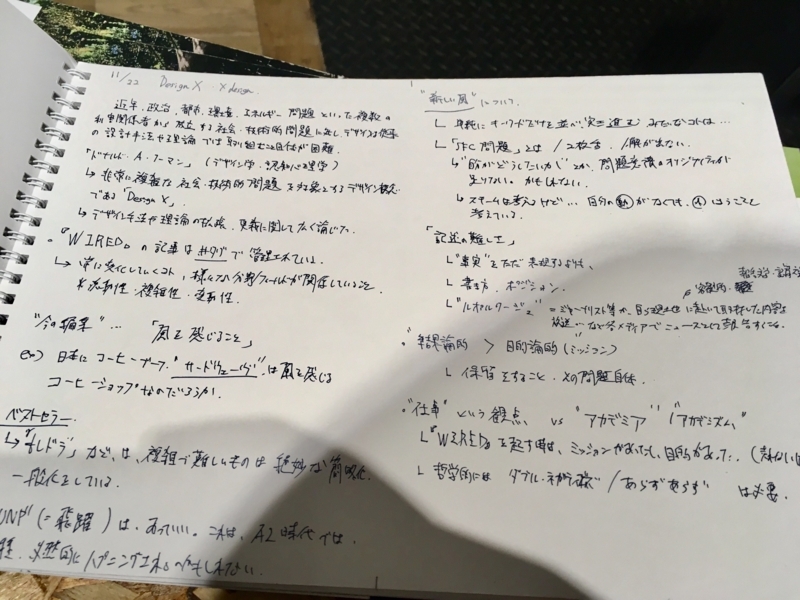 11/22 Design X · X design.
近年、政治、都市、環境、エネルギー問題といった複数の
利害関係者から成立する社会・技術的問題に対しデザインは従来
の設計手法や理論では取り組むこと自体が困難.
「ドナルド・A・ノーマン」 (デザイン学・認知心理学)
↳ 非常に複雑な社会・技術的問題を対象とするデザイン
である「Design X」.
↳ デザイン手法や理論の、意義に関して広く論じた.
。『WIRED』の記事は#タグで管理されている.
↳ 常に変化していくコト、様々な分野/フィールドが関係していること.
※流動性・複雑性・変動性.
"今の編集" … 「風を感じること」
ex) 日本にコーヒーブーム."サードウェーヴ"は風を感じる
コーヒーショップなのだろうか.
ベストセラー.
↳ "もしドラ" などは、複雑で難しいものは絶妙な簡略化.
一般化をしている.
JUMP" (=飛躍) は、あっていい。これは、AI時代では.
必然的にハプニングエネかもしれない.
"新しい風" について.
└ 単純にキーワードだけを並べ、みたいなコトは…
└ 「SFC問題」とは /2枚舌 /解が出ない.
↳ "自分がどうしたいか" とか、問題意識のオリジナリティが
足りない。かもしれない.
↳ スキームは考えるけど… 自分の が なくても、 ということ
考えている.
「記述の難しさ」
└ "事実" をただ表現するよりも、
└ 書き方、ポジション.
└ "ルポルタージュ" = ジャーナリスト等が、自ら現地に赴いて見聞した内容を
放送… などで各メディアでニュースとして報告すること.
。"結論的 > 目的論的 (ミッション)
└ 保留をすること・その問題自体.
。"仕事" という観点 vs "アカデミア" /"アカデミズム"
└ 『WIRED』を起す時は、ミッションがあったし、目的があった.
└ 哲学的には ダブル・ネガティブ /"あらずあらず" は必要.